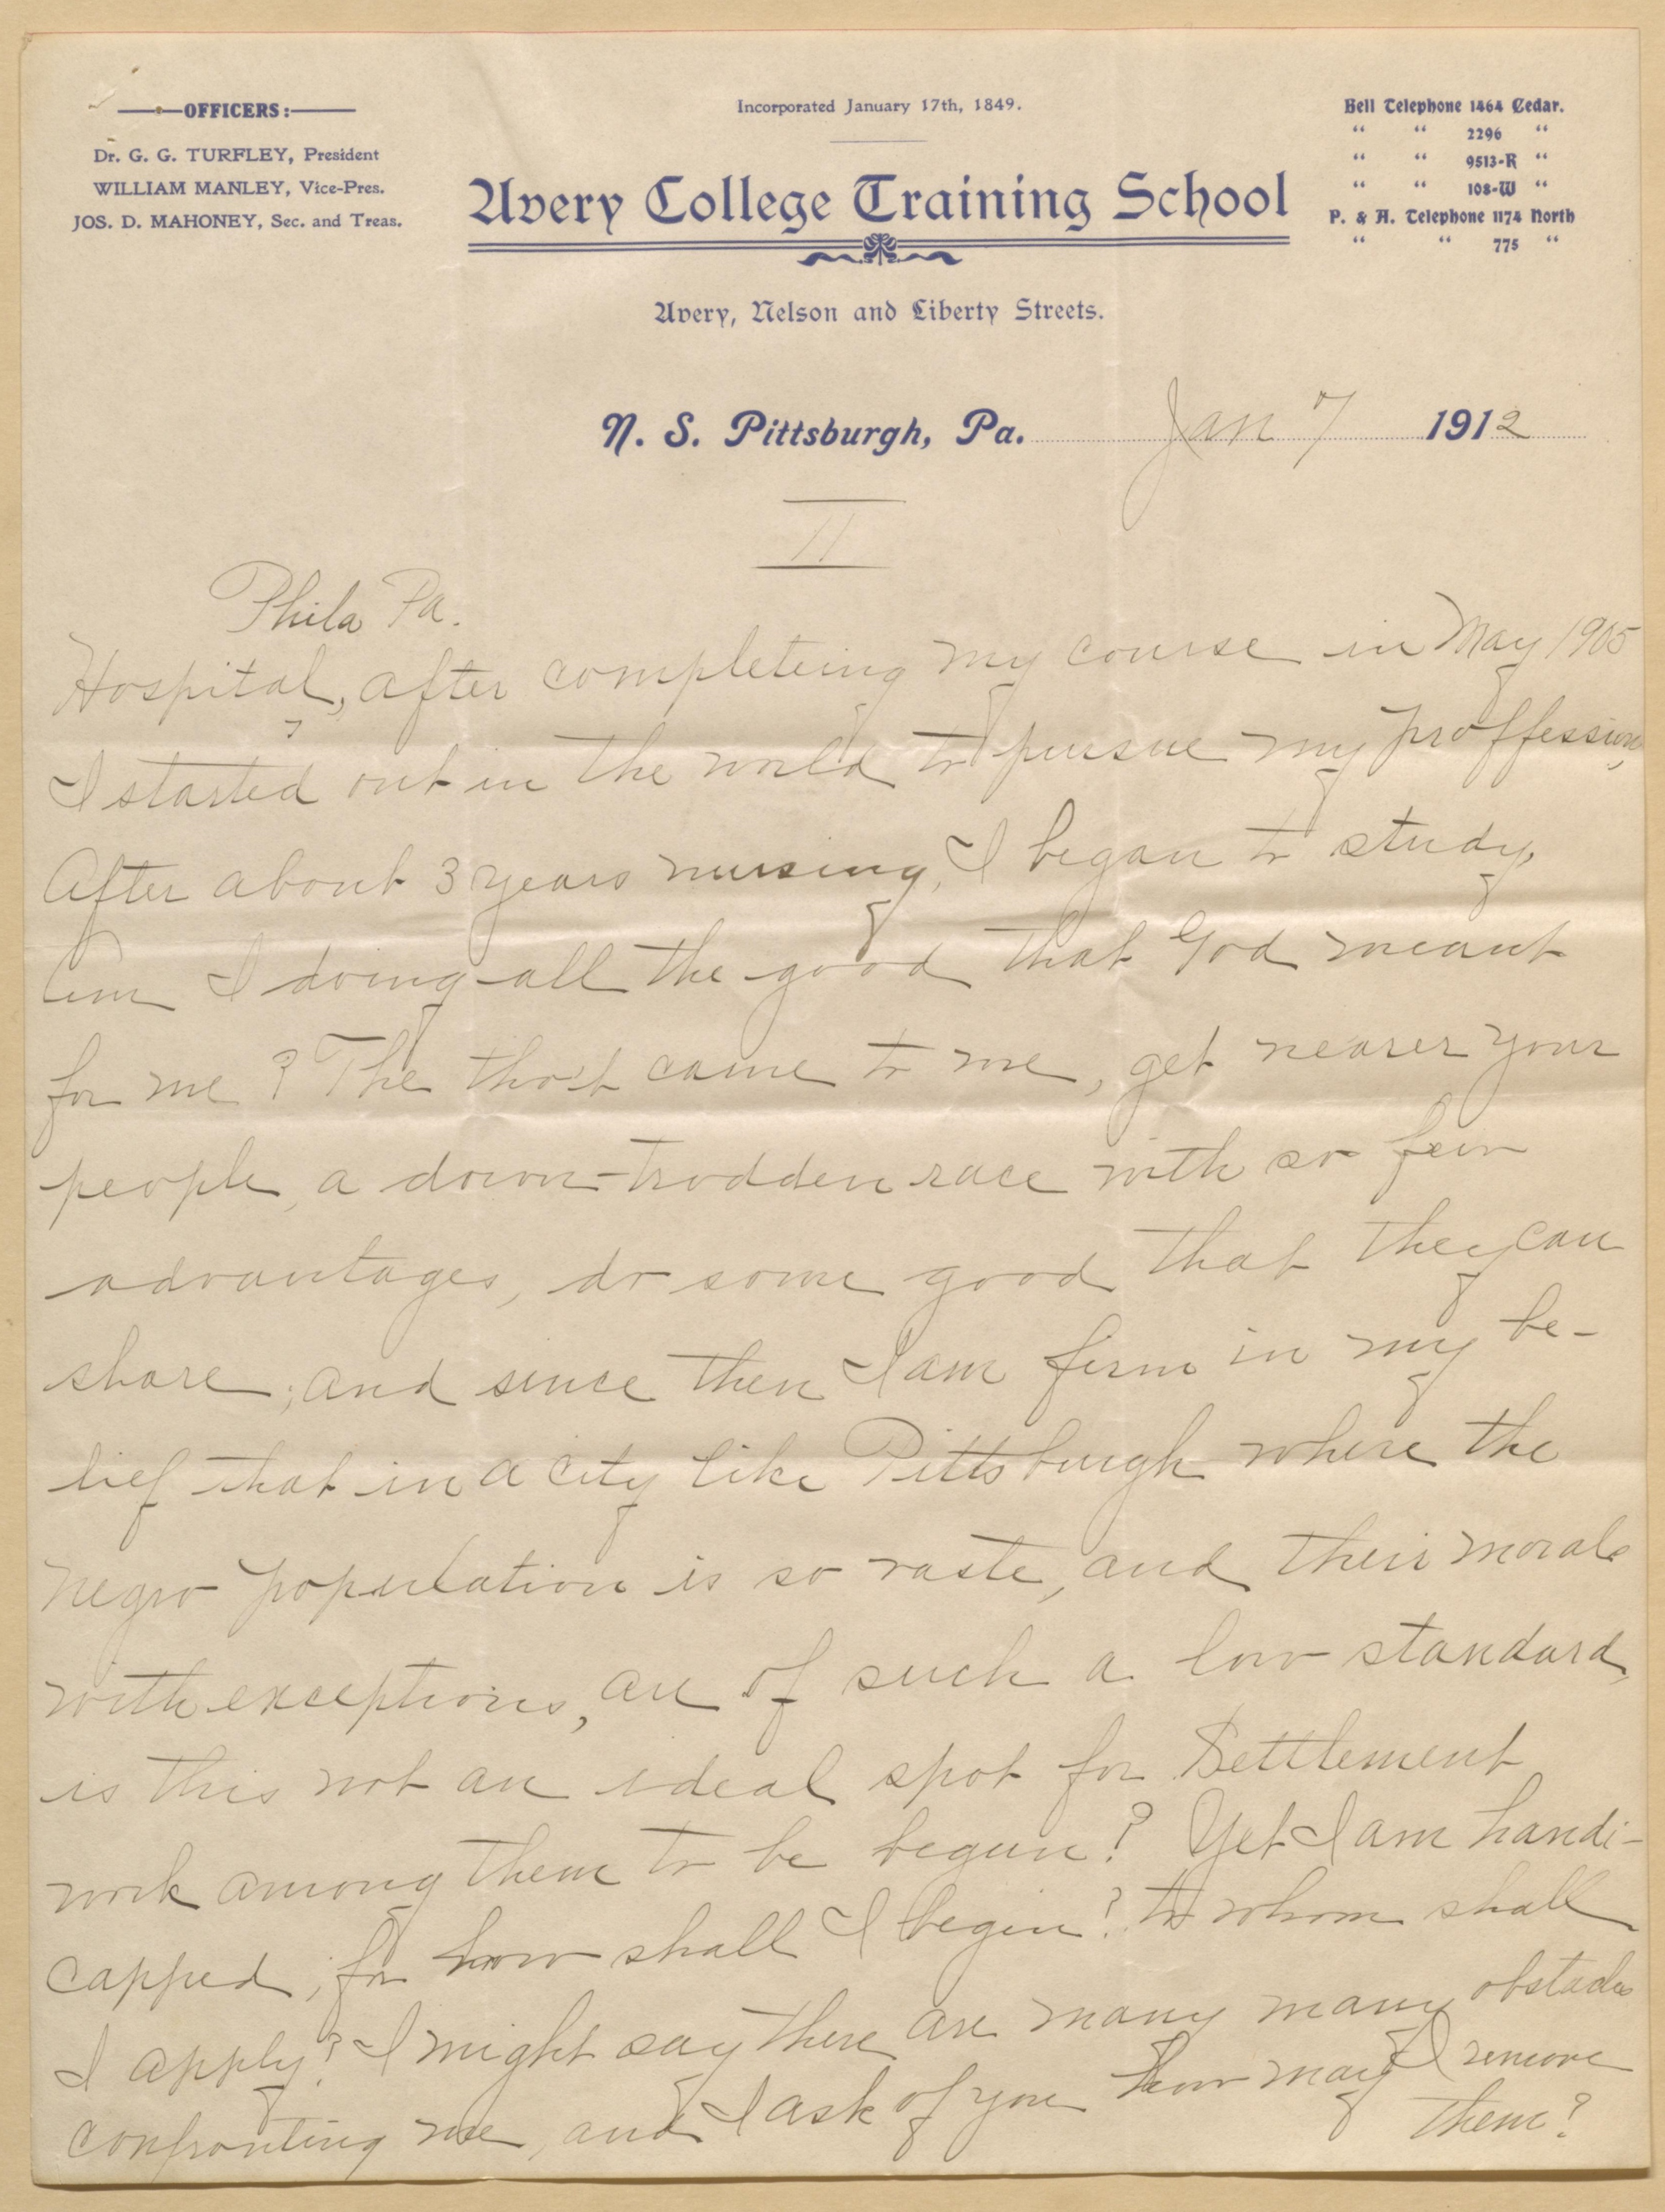 OFFICERS:
Dr. G. G. TURFLEY, President
WILLIAM MANLEY, Vice-Pres.
JOS. D. MAHONEY, Sec. and Treas.
Incorporated January 17th, 1849.
Avery College Training School
Avery, Nelson and Liberty Streets.
Bell Telephone 1464 Cedar.
“ “ 2296 “
“ “ 9513-R “
“ “ 108-W “
P. & A. Telephone 1174 North
“ “ 775 “
N. S. Pittsburgh, Pa. Jan 7 1912
II
Phila Pa.
Hospital, after completeing my course in May 1905
I started out in the world to pursue my proffession,
After about 3 years nursing, I began to study,
Am I doing all the good that God meant
for me? The tho't came to me, get nearer your
people, a down-trodden race with so few
advantages, do some good that they can
share; and since then I am firm in my be-
lief that in a city like Pittsburgh where the
negro population is so vaste, and their morals
with exceptions, are of such a low standard,
is this not an ideal spot for Settlement
work among them to be begun? Yet I am handi-
capped; for how shall I begin? to whom shall
I apply? I might say there are many many obstacles
confronting me, and I ask of you how may I remove
them?